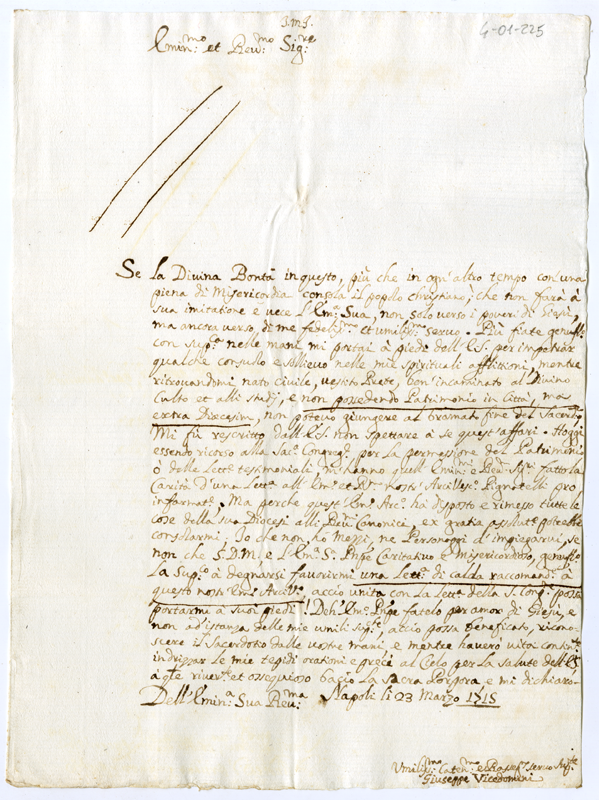 J.M.J.
4-01-225
Emin:mo et Rev:mo Sig:re
Se la Divina Bontà in questo, più che in ogn'altro tempo con una
piena di Misericordia consola il popolo christiano; che non farà à
sua imitatione e vece l'Em:a Sua, non solo verso i poveri di Giesù,
ma ancora verso di me fedeliss:mo et umiliss:mo servo. Più fiate genufl:o
con sup:ca nelle mani mi portai à piedi dell'E.S. per impetrar
qualche consullo e sollievo nelle mie spirituali afflitioni, mentre
ritrovandomi nato civile, vestito Prete, ben incaminato al Divino
Culto et alli studj, e non possedendo Patrimonio in Città, ma
extra Diœcesim, non potevo giungere al bramat: fine del Sacerd:o
Mi fù rescritto dall'E.S. non spettare à se quest'affari. Hoggi
essendo ricorso alla Sac: Congreg:e per la permessione del Patrimonio
ò delle Lett:e testimoniali, hanno quell'Emin:mi e Rev:mi Sig:ri fatto la
Carità d'una Lett:a all'Em:o et R:mo nostr: Arcivesc: Pignatelli pro
informat:e, Ma perche quest'Em:o Arc:o ha disposto e rimesso tutte le
cose della sua Diocesi alli Rev:mi Canonici, ex gratia assolut: potrebbe
consolarmi. Io che non hò Mezzi, ne Personaggi d'impiegarvi, se
non che S.D.M. e l'Em:a S: Pn̄pe Caritativo e Misericordioso, genufl:o
La Sup:co à degnarsi favorirmi una Lett:a di calda raccomand:e à
questo nostr: Em:o Arciv:o, acciò unita con la Lett:a della S. Cong:e possa
portarmi à suoi piedi! Deh! Em:o Pn̄pe fatelo per amor di Giesù, e
non ad istanza delle mie umili sup:che, acciò possa beneficato, ricono-
scere il Sacerdotio dalle vostre mani, e mentre haverò vita contin:te
indrizzar le mie tepidi orationi e preci al Cielo per la salute dell'E.S.
à q:le river:te et ossequioso bacio la Sacra Porpora e mi dichiaro-
Dell'Emin:a Sua Rev:ma Napoli li 23 Marzo 1715
Umiliss:mo
Giuseppe Vicedomini